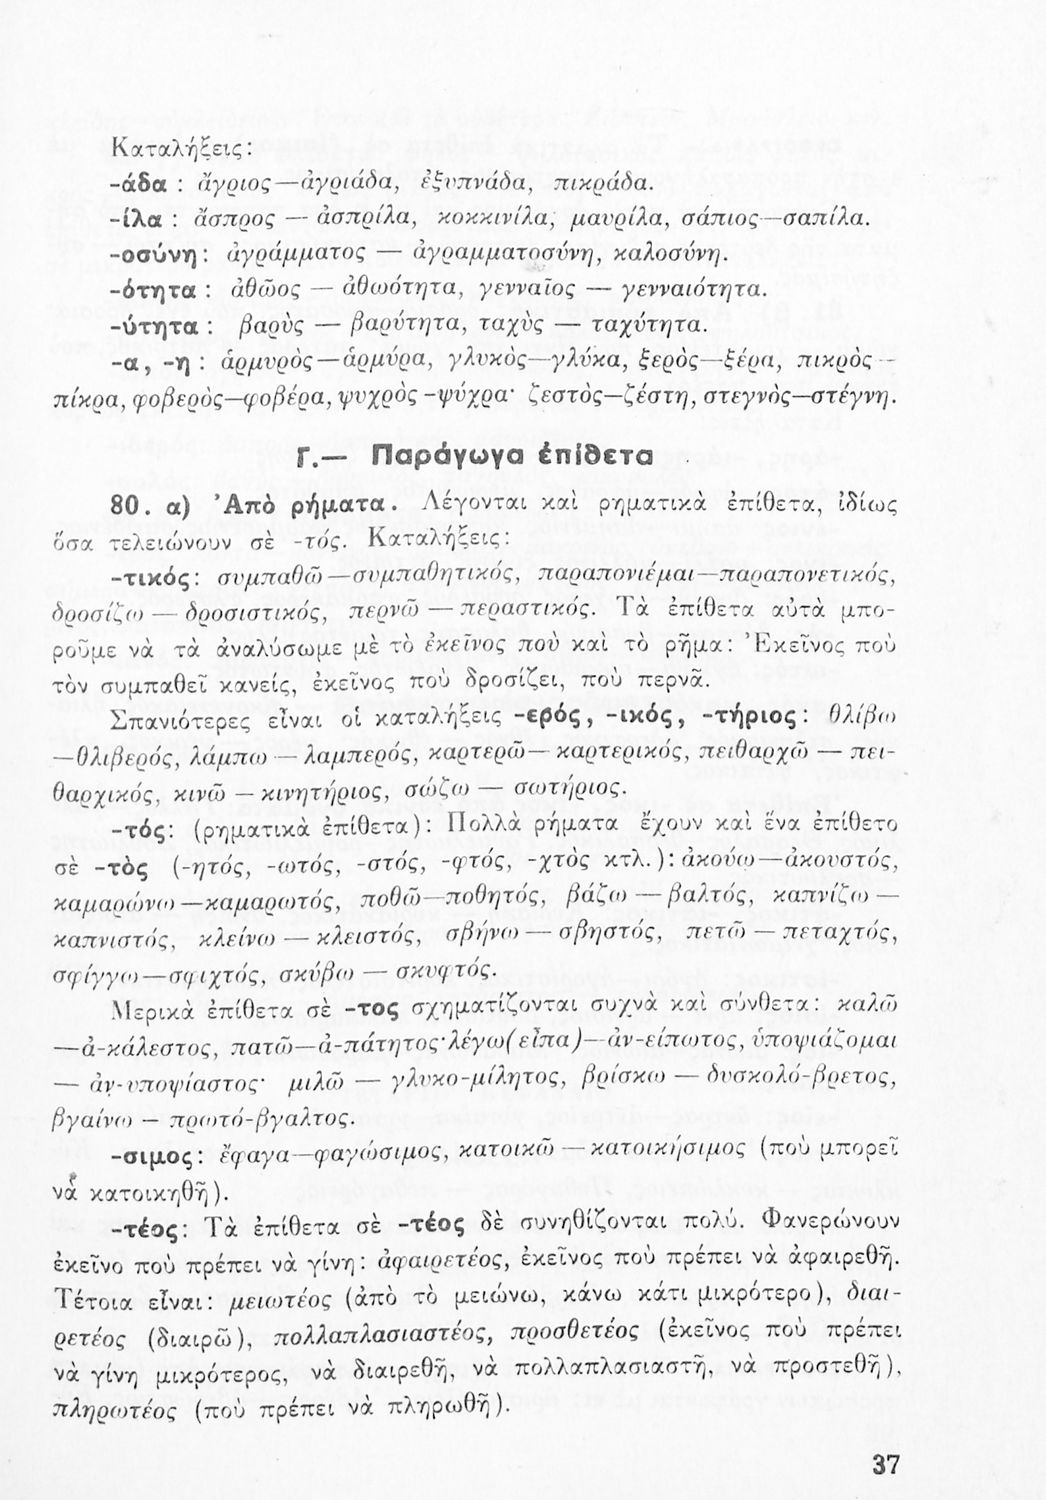 Καταλήξεις:
-άδα : ἄγριος—ἀγριάδα, ἐξυπνάδα, πικράδα.
-ίλα : ἄσπρος — ἀσπρίλα, κοκκινίλα, μαυρίλα, σάπιος—σαπίλα.
-οσύνη: ἀγράμματος — ἀγραμματοσύνη, καλοσύνη.
-ότητα : ἀθῶος — ἀθωότητα, γενναῖος — γενναιότητα.
-ύτητα : βαρὺς — βαρύτητα, ταχὺς — ταχύτητα.
-α, -η : ἁρμυρὸς—ἁρμύρα, γλυκὸς—γλύκα, ξερὸς—ξέρα, πικρὸς—
πίκρα, φοβερὸς—φοβέρα, ψυχρὸς -ψύχρα· ζεστὸς—ζέστη, στεγνὸς—στέγνη.
Γ.— Παράγωγα ἐπίθετα
80. α) Ἀπὸ ρήματα. Λέγονται καὶ ρηματικὰ ἐπίθετα, ἰδίως
ὅσα τελειώνουν σὲ -τός. Καταλήξεις:
-τικός: συμπαθῶ—συμπαθητικός, παραπονιέμαι—παραπονετικός,
δροσίζω — δροσιστικός, περνῶ — περαστικός. Τὰ ἐπίθετα αὐτὰ μπο-
ροῦμε νὰ τὰ ἀναλύσωμε μὲ τὸ ἐκεῖνος ποὺ καὶ τὸ ρῆμα: Ἐκεῖνος ποὺ
τὸν συμπαθεῖ κανείς, ἐκεῖνος ποὺ δροσίζει, ποὺ περνᾶ.
Σπανιότερες εἶναι οἱ καταλήξεις -ερός, -ικός, -τήριος: θλίβω
—θλιβερός, λάμπω — λαμπερός, καρτερῶ— καρτερικός, πειθαρχῶ — πει-
θαρχικός, κινῶ — κινητήριος, σώζω — σωτήριος.
-τός: (ρηματικὰ ἐπίθετα): Πολλὰ ρήματα ἔχουν καὶ ἕνα ἐπίθετο
σὲ -τὸς (-ητός, -ωτός, -στός, -φτός, -χτὸς κτλ.): ἀκούω—ἀκουστός,
καμαρώνω—καμαρωτός, ποθῶ—ποθητός, βάζω — βαλτός, καπνίζω —
καπνιστός, κλείνω — κλειστός, σβήνω — σβηστός, πετῶ — πεταχτός,
σφίγγω—σφιχτός, σκύβω — σκυφτός.
Μερικὰ ἐπίθετα σὲ -τος σχηματίζονται συχνὰ καὶ σύνθετα: καλῶ
—ἀ-κάλεστος, πατῶ—ἀ-πάτητος· λέγω(εἶπα)—ἀν-είπωτος, ὑποψιάζομαι
— ἀν-υποψίαστος· μιλῶ — γλυκο-μίλητος, βρίσκω — δυσκολό-βρετος,
βγαίνω — πρωτό-βγαλτος.
-σιμος: ἔφαγα—φαγώσιμος, κατοικῶ—κατοικήσιμος (ποὺ μπορεῖ
νὰ κατοικηθῆ).
-τέος: Τὰ ἐπίθετα σὲ -τέος δὲ συνηθίζονται πολύ. Φανερώνουν
ἐκεῖνο ποὺ πρέπει νὰ γίνη: ἀφαιρετέος, ἐκεῖνος ποὺ πρέπει νὰ ἀφαιρεθῆ.
Τέτοια εἶναι: μειωτέος (ἀπὸ τὸ μειώνω, κάνω κάτι μικρότερο), διαι-
ρετέος (διαιρῶ), πολλαπλασιαστέος, προσθετέος (ἐκεῖνος ποὺ πρέπει
νὰ γίνη μικρότερος, νὰ διαιρεθῆ, νὰ πολλαπλασιαστῆ, νὰ προστεθῆ),
πληρωτέος (ποὺ πρέπει νὰ πληρωθῆ).
37